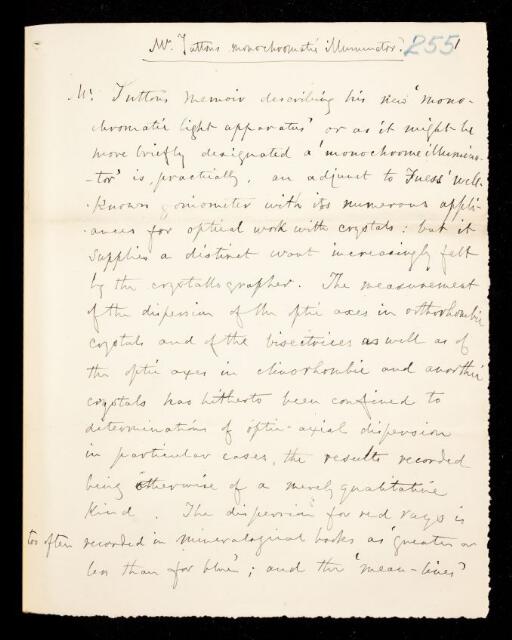 Mr. Tuttons monochromatic illuminator. 255 1
Mr. Tuttons memoir describing his new 'mono-
chromatic light apparatus' or as it might be
more briefly designated a 'monochrome illumina-
-tor' is, practically, an adjunct to Fuess' well-
-known goniometer with its numerous appli-
-ances for optical work with crystals: but it
supplies a distinct want increasingly felt
by the crystallographer. The measurement
of the dispersion of the optic axes in orthorhombic
crystals and of the bisectrices as well as of
the optic axes in clinorhombic and anorthic
crystals has hitherto been confined to
determinations of optic-axial dispersion
in particular cases, the results recorded
being otherwise of a merely qualitative
kind. The dispersion for red rays is
too often recorded in mineralogical books as 'greater or
less than for blue'; and the 'mean-lines'